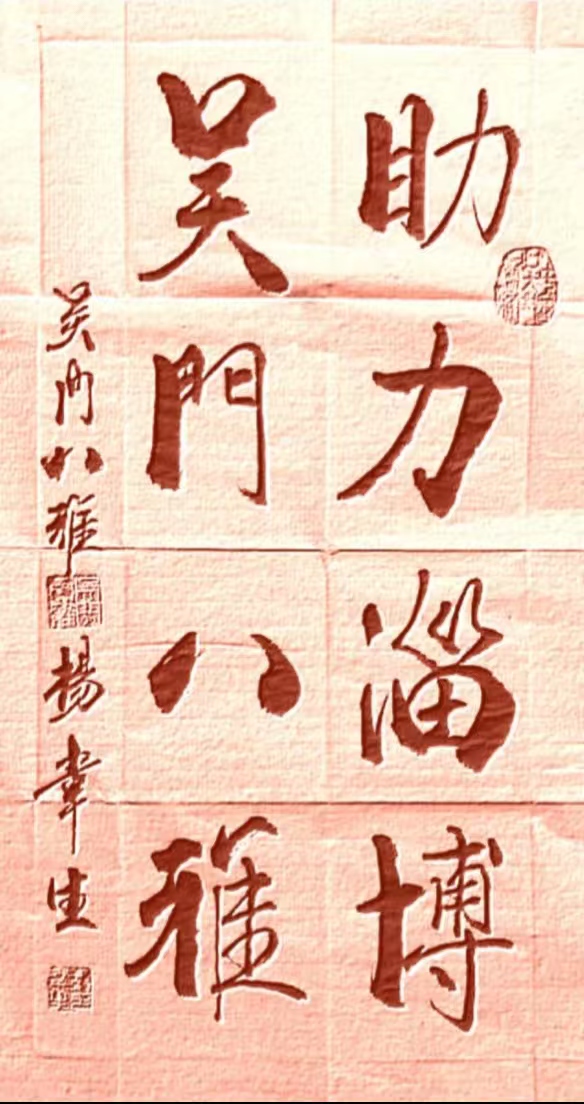 助力淄博
吴門八雅
吴门八雅
楊韋生